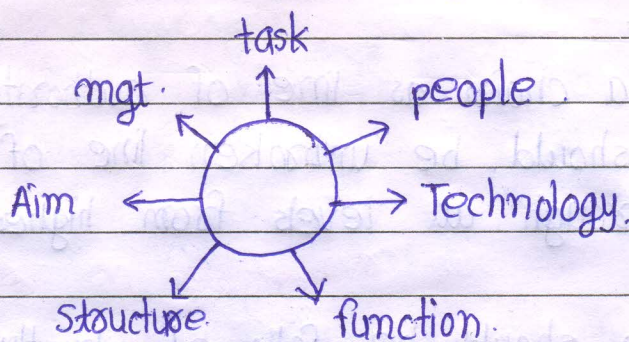 task
mgt.
people.
Aim
Technology.
structure.
function.